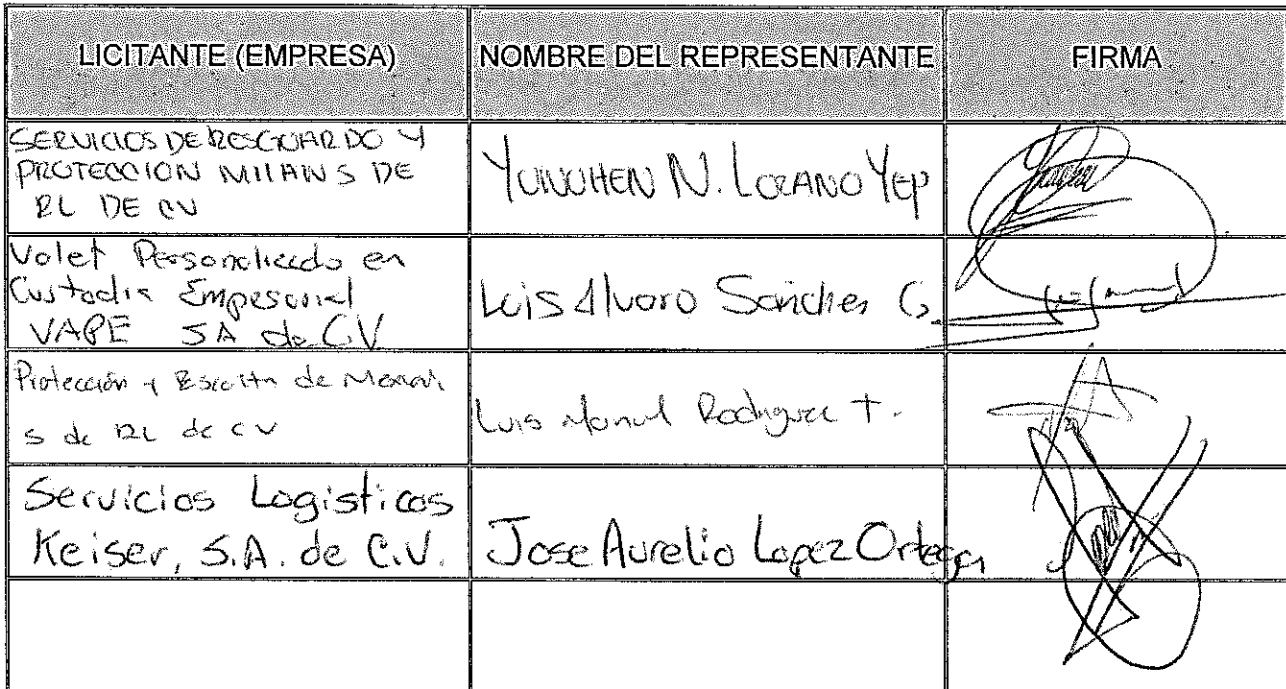 LICITANTE (EMPRESA)
NOMBRE DEL REPRESENTANTE
FIRMA
SERVICIOS DE RESGUARDO Y
PROTECCION MILAN S DE
RL DE CV
YUNUHEN N. LOZANO YEP
Valet Personalizado en
Custodia Empesarial
VAPE SA de C.V
Luis Alvaro Sanchez G.
Protección y Escolta de
s de RL de cv
Luis Manuel Rodriguez T.
Servicios Logisticos
Keiser, S.A. de C.V.
Jose Aurelio Lopez Ortega